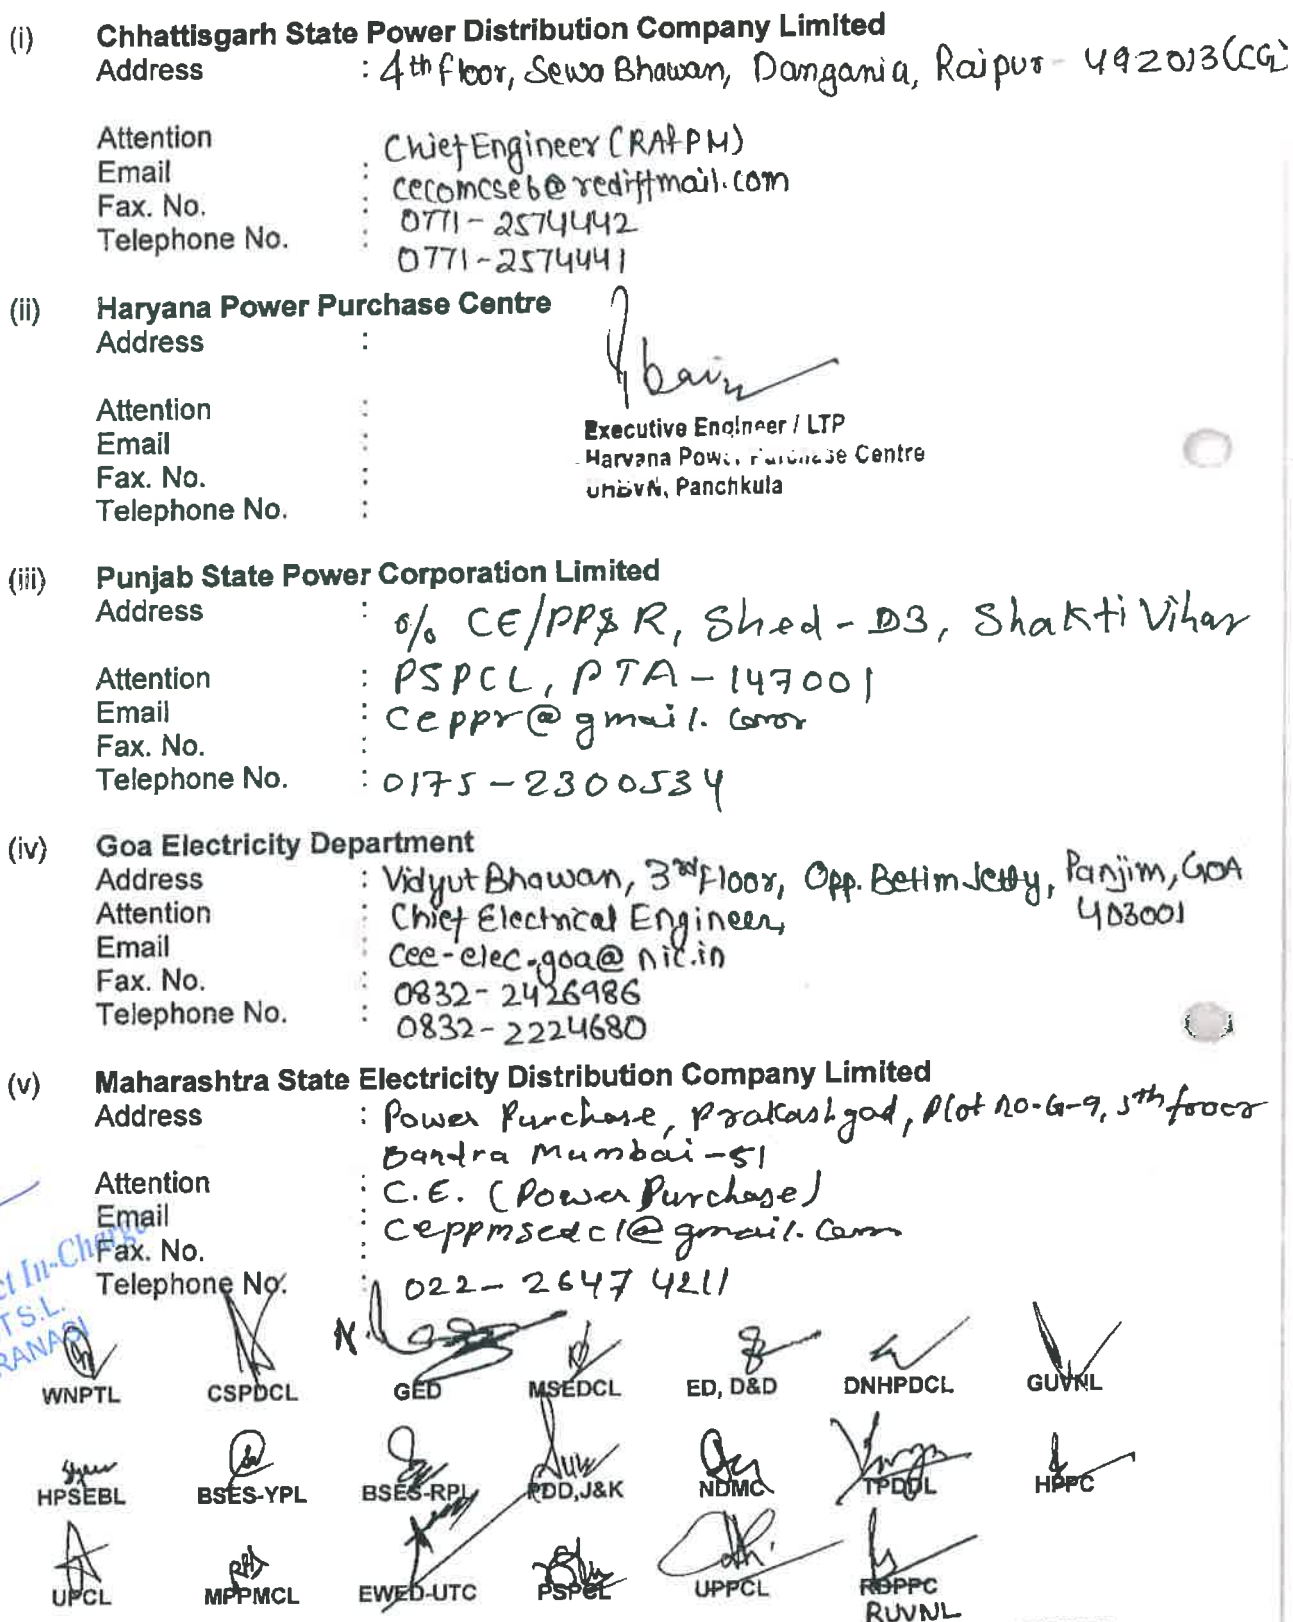 (i) Chhattisgarh State Power Distribution Company Limited
Address : 4th floor, Sewa Bhawan, Dangania, Raipur - 492013(CG)
Attention Chief Engineer (RA&PM)
Email : cecomcseb@rediffmail.com
Fax. No. : 0771-2574442
Telephone No. : 0771-2574441
(ii) Haryana Power Purchase Centre
Address :
Attention :
Email :
Fax. No. :
Telephone No. :
Executive Engineer / LTP
Haryana Power Purchase Centre
UHBVN, Panchkula
(iii) Punjab State Power Corporation Limited
Address : o/o CE/PP&R, Shed-D3, Shakti Vihar
Attention : PSPCL, PTA-147001
Email : ceppr@gmail.com
Fax. No. :
Telephone No. : 0175-2300534
(iv) Goa Electricity Department
Address : Vidyut Bhawan, 3rd floor, Opp. Betim Jetty, Panjim, GOA
403001
Attention : Chief Electrical Engineer,
Email : cee-elec.goa@nic.in
Fax. No. : 0832-2426986
Telephone No. : 0832-2224680
(v) Maharashtra State Electricity Distribution Company Limited
Address : Power Purchase, Prakashgad, Plot no-G-9, 5th floor
Bandra Mumbai-51
Attention : C.E. (Power Purchase)
Email : ceppmsedcl@gmail.com
Fax. No. :
Telephone No. : 022-26474211
In-Charge
T S.L.
RANASI
WNPTL CSPDCL GED MSEDCL ED, D&D DNHPDCL GUVNL
HPSEBL BSES-YPL BSES-RPL PDD,J&K NDMC TPDDL HPPC
UPCL MPPMCL EWED-UTC PSPCL UPPCL RDPPC
RUVNL